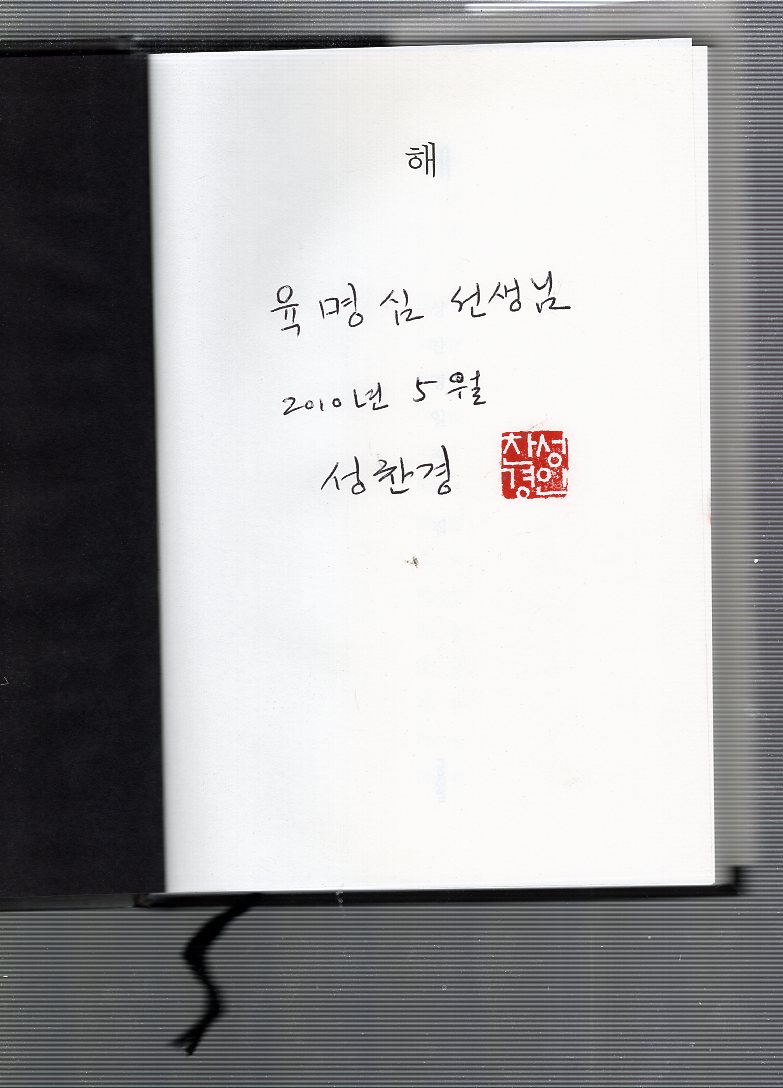 해
육명심 선생님
2010년 5월
성찬경
성찬경인